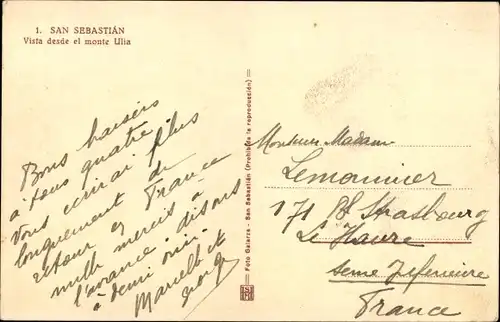 1. SAN SEBASTIÁN
Vista desde el monte Ulia
Bons baisers
à tous quatre plus
Vous écrirai plus
longuement de
retour en France
mille mercis à
l'avance. disons
à demi oui.
Marcelle et
Foto Galarza - San Sebastián (Prohibida la reproducción)
Monsieur Madame
Lemonnier
171 Bd Strasbourg
Le Havre
Seine Inférieure
France